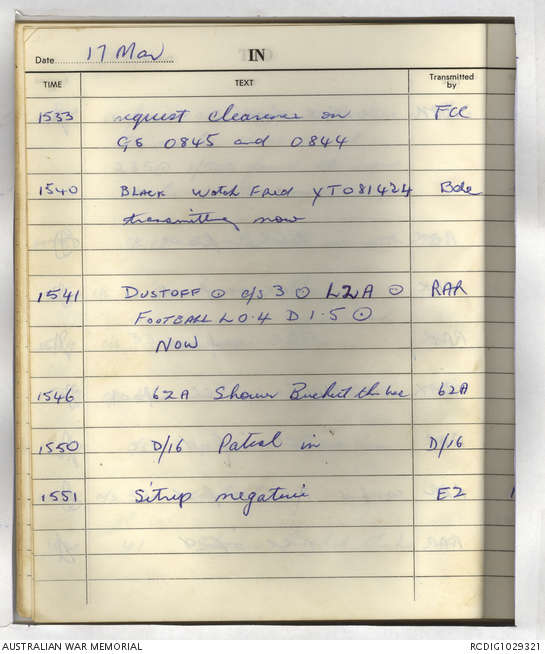 Date 17 Mar IN
TIME TEXT Transmitted by
1533 request clearance on FCC
GS 0845 and 0844
1540 BLACK Watch Fired YT081424 Bde
transmitting now
1541 DUSTOFF ⊙ c/s 3 ⊙ LZ A ⊙ RAR
FOOTBALL L 0.4 D 1.5 ⊙
NOW
1546 62A Shower Bucket 62A
1550 D/16 Patrol in D/16
1551 Sitrep negative E2
AUSTRALIAN WAR MEMORIAL RCDIG1029321